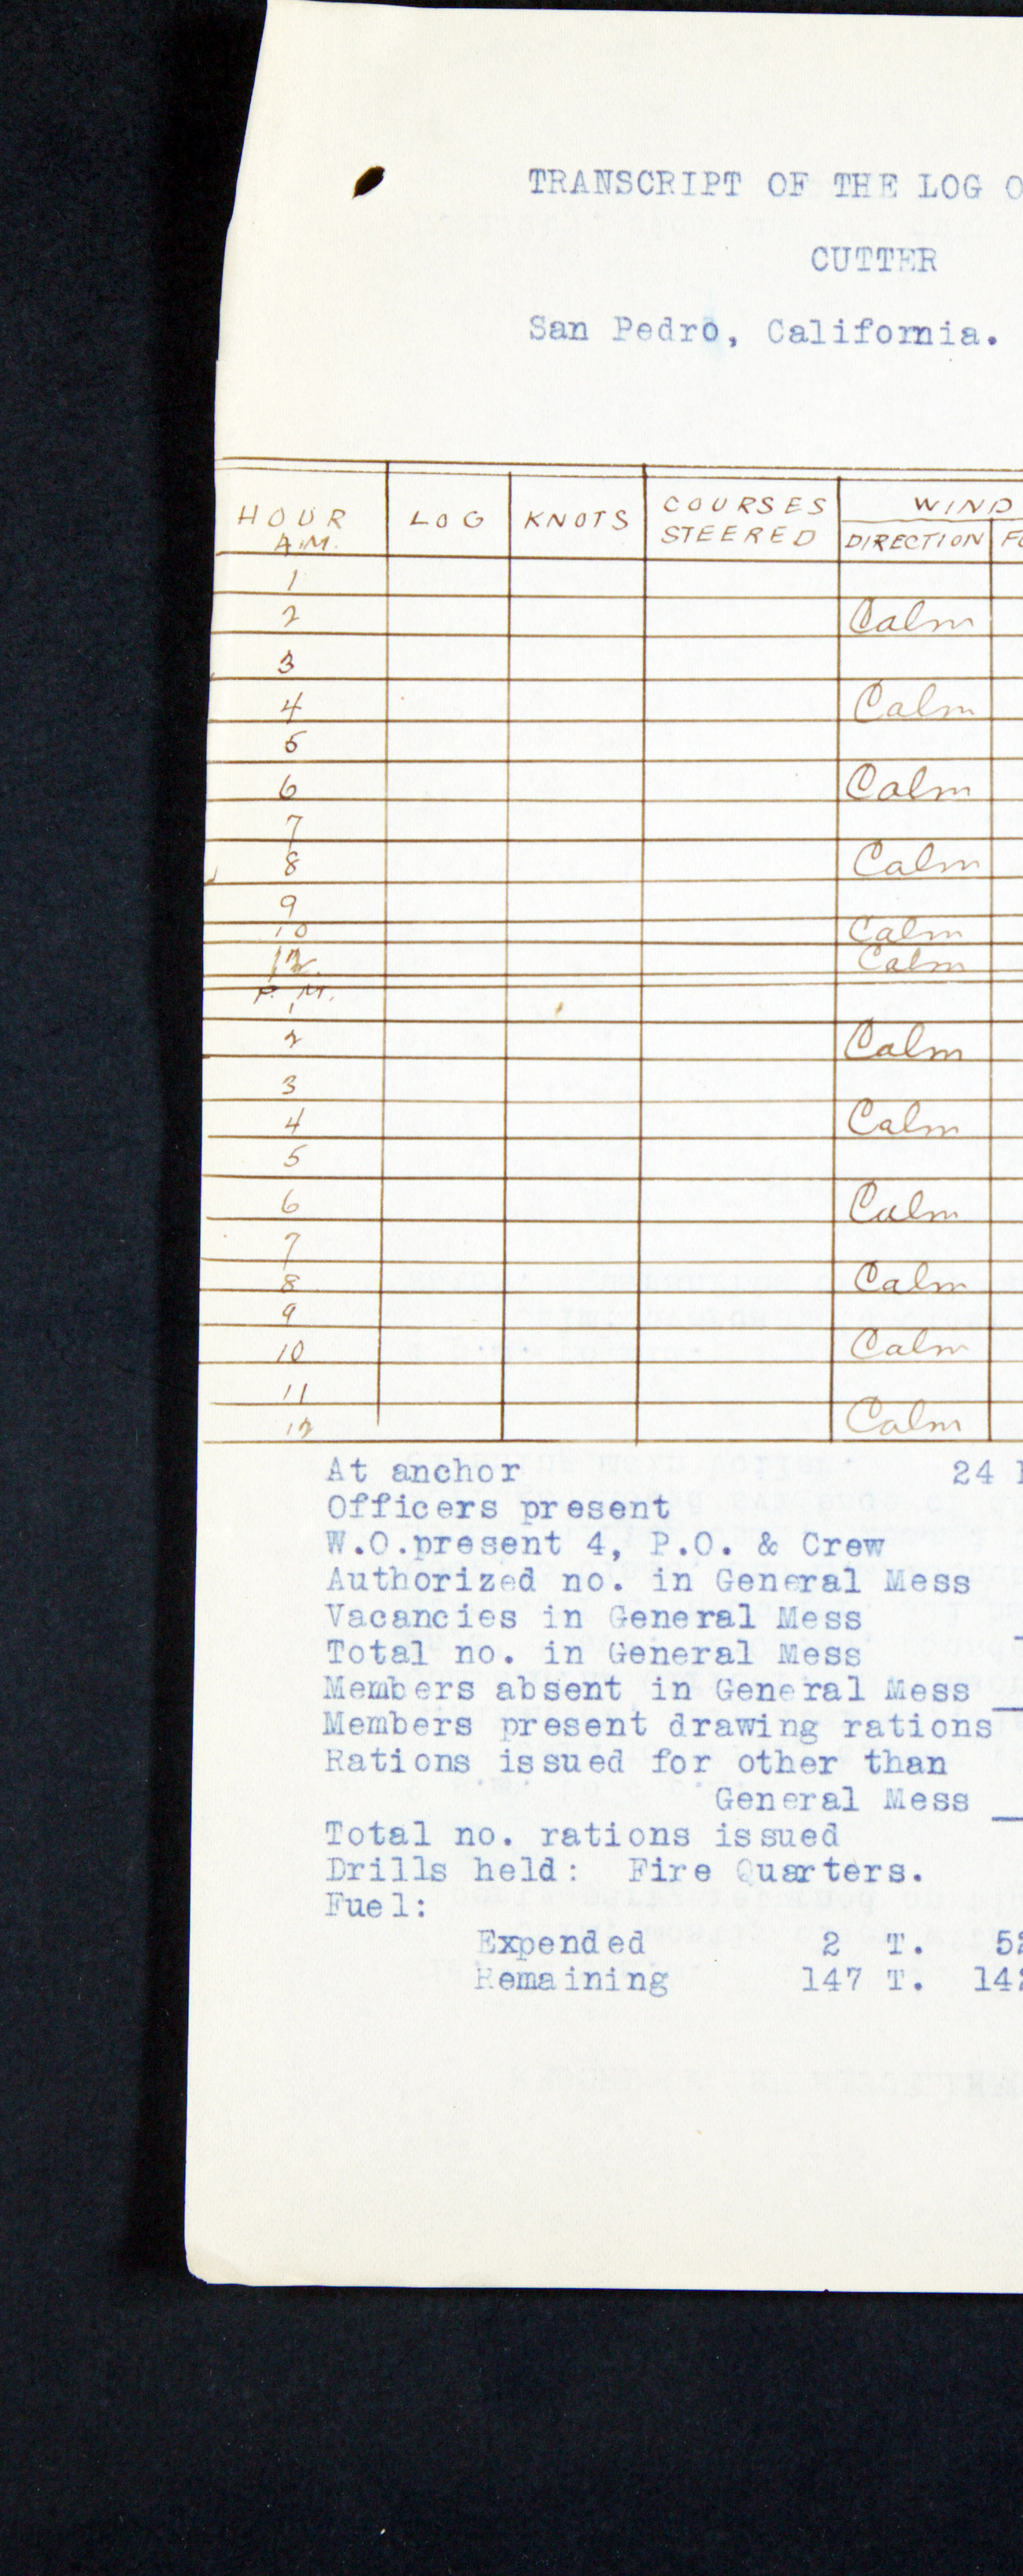 TRANSCRIPT OF THE LOG O
CUTTER
San Pedro, California.
HOUR LOG KNOTS COURSES STEERED WIND
A.M. DIRECTION FO
1
2 Calm
3
4 Calm
5
6 Calm
7
8 Calm
9
10 Calm
12 Calm
P. M.
1
2 Calm
3
4 Calm
5
6 Calm
7
8 Calm
9
10 Calm
11
12 Calm
At anchor 24
Officers present
W.O.present 4, P.O. & Crew
Authorized no. in General Mess
Vacancies in General Mess
Total no. in General Mess
Members absent in General Mess
Members present drawing rations
Rations issued for other than
General Mess
Total no. rations issued
Drills held: Fire Quarters.
Fuel:
Expended 2 T. 52
Remaining 147 T. 142